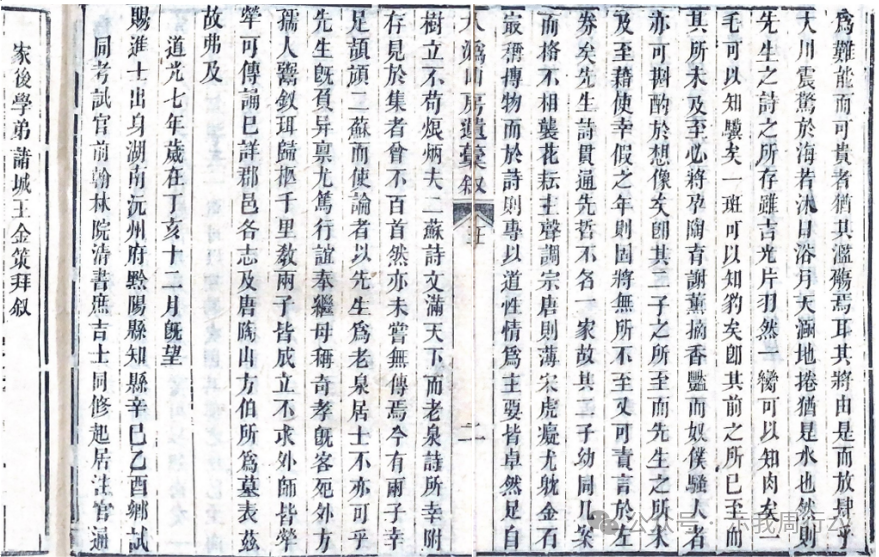 爲難能而可貴者猶其濫殤焉耳其將由是而放肆乎
大川震驚於海若沐日浴月天涵地捲猶是水也然則
先生之詩之所存雖吉光片羽然一臠可以知肉矣一
毛可以知驥矣一斑可以知豹矣卽其前之所已至而
其所未及至必將孕陶育謝薰摘香豔而奴僕騷人者
亦可斟酌於想像矣卽其二子之所至而先生之所未
及至藉使幸假之年則固將無所不至又可責言於左
劵矣先生詩貫通先哲不名一家故其二子幼同几案
而格不相襲花耘主聲調宗唐則薄宋虎癡尤躭金石
最稱博物而於詩則專以道性情爲主要皆卓然足自
大潙山房遺藁叙 二
樹立不苟煥炳夫二蘇詩文滿天下而老泉詩所幸附
存見於集者曾不百首然亦未嘗無傳焉今有兩子幸
足頡頏二蘇而使論者以先生爲老泉居士不亦可乎
先生旣負异禀尤篤行誼奉繼母稱奇孝旣客死外方
孺人鬻釵珥歸柩千里敎兩子皆成立不求外師皆犖
犖可傳誦已詳郡邑各志及唐陶山方伯所爲墓表茲
故弗及
道光七年歲在丁亥十二月旣望
賜進士出身湖南沅州府黔陽縣知縣辛巳乙酉鄉試
同考試官前翰林院淸書庶吉士同修起居注官通
家後學弟諸城王金策拜叙
公众号·不我周行公